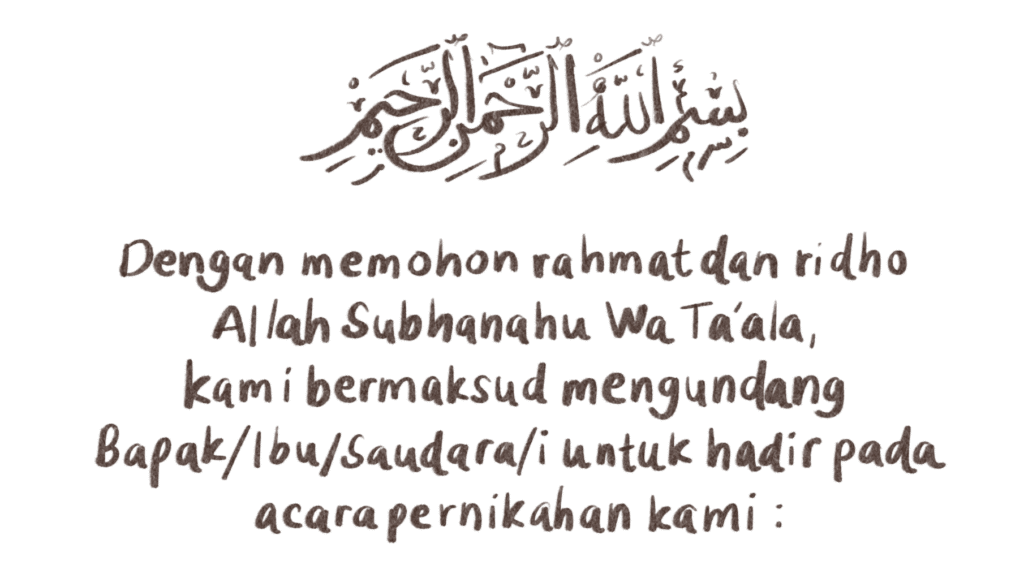 بِسْمِ اللَّهِ الرَّحْمَنِ الرَّحِيمِ
Dengan memohon rahmat dan ridho
Allah Subhanahu Wa Ta'ala,
kami bermaksud mengundang
Bapak/Ibu/Saudara/i untuk hadir pada
acara pernikahan kami :